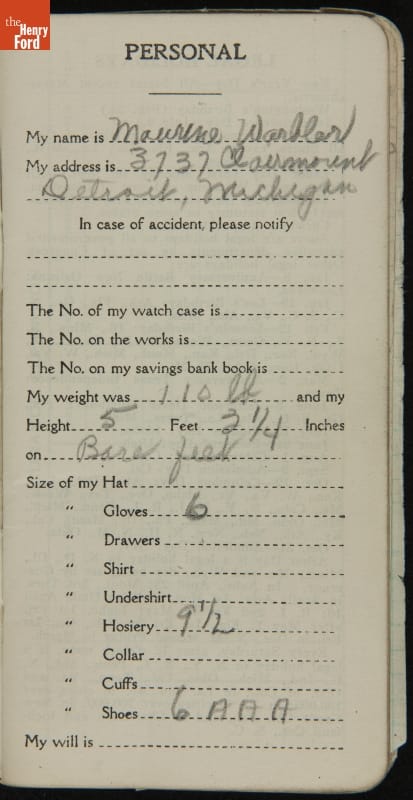 the
Henry
Ford
PERSONAL
My name is Maurine Warbler
My address is 3737 Clairmount
Detroit, Michigan
In case of accident, please notify
The No. of my watch case is
The No. on the works is
The No. on my savings bank book is
My weight was 110 lb and my
Height 5 Feet 3 1/4 Inches
on Bare feet
Size of my Hat
" Gloves 6
" Drawers
" Shirt
" Undershirt
" Hosiery 9 1/2
" Collar
" Cuffs
" Shoes 6 A A A
My will is